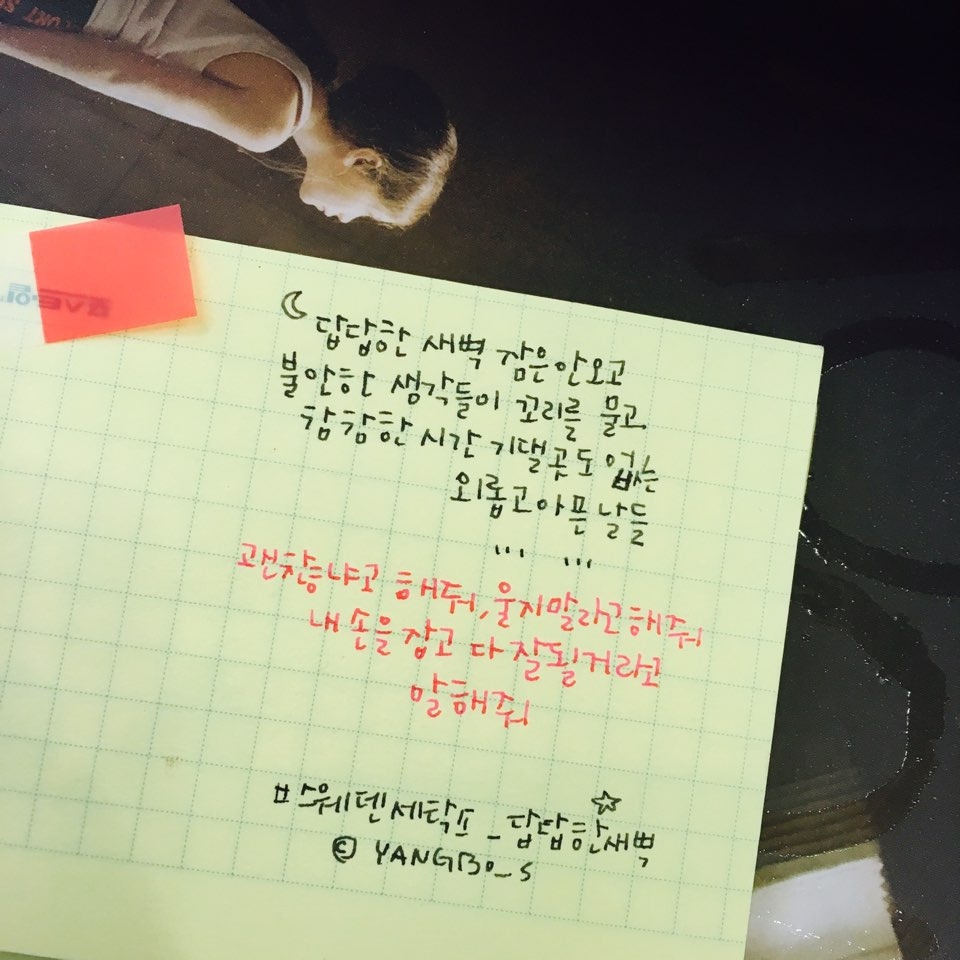 답답한 새벽 잠은안오고
불안한 생각들이 꼬리를 물고
참참한 시간 기댈곳도 없는
외롭고아픈날들
... ...
괜찮냐고 해줘, 울지말라고해줘
내손을잡고 다잘될거라고
말해줘
스웨덴세탁소 _ 답답한새벽
© YANGBO_S